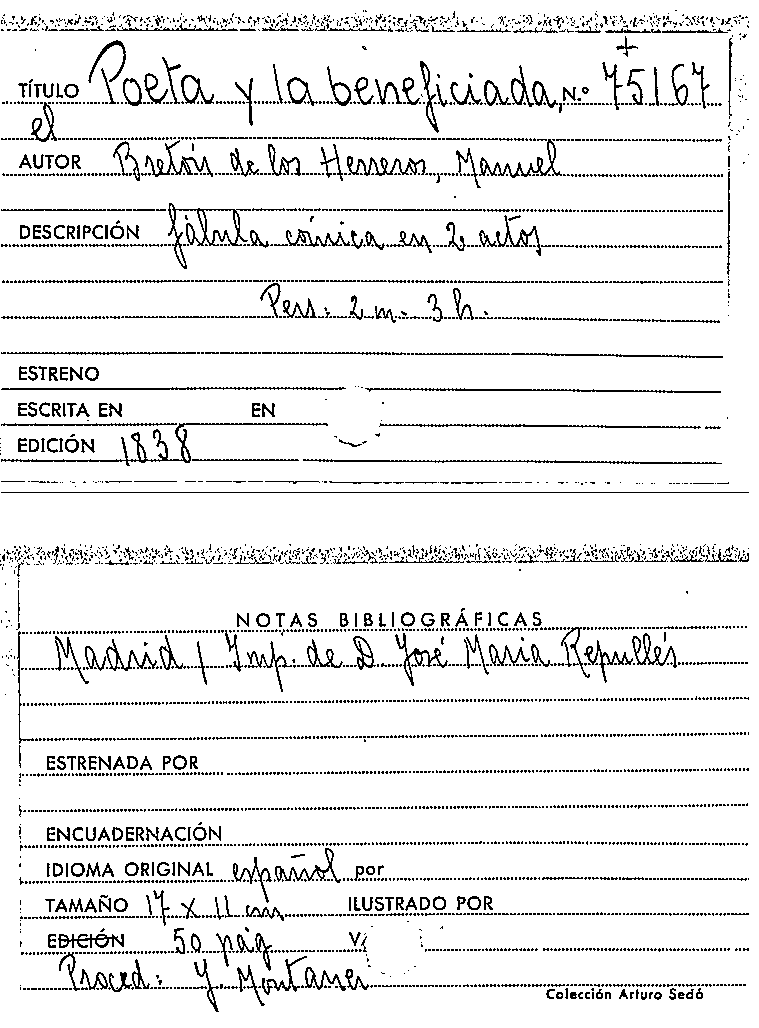 +
TÍTULO Poeta y la beneficiada, N.º 75167
el
AUTOR Bretón de los Herreros, Manuel
DESCRIPCIÓN fábula cómica en 2 actos
Pers: 2 m. 3 h.
ESTRENO
ESCRITA EN EN
EDICIÓN 1838
NOTAS BIBLIOGRÁFICAS
Madrid / Imp. de D José Maria Repullés
ESTRENADA POR
ENCUADERNACIÓN
IDIOMA ORIGINAL español por
TAMAÑO 17 x 11 cm ILUSTRADO POR
EDICIÓN 50 pág V/
Proced: Y. Montaner
Colección Arturo Sedó